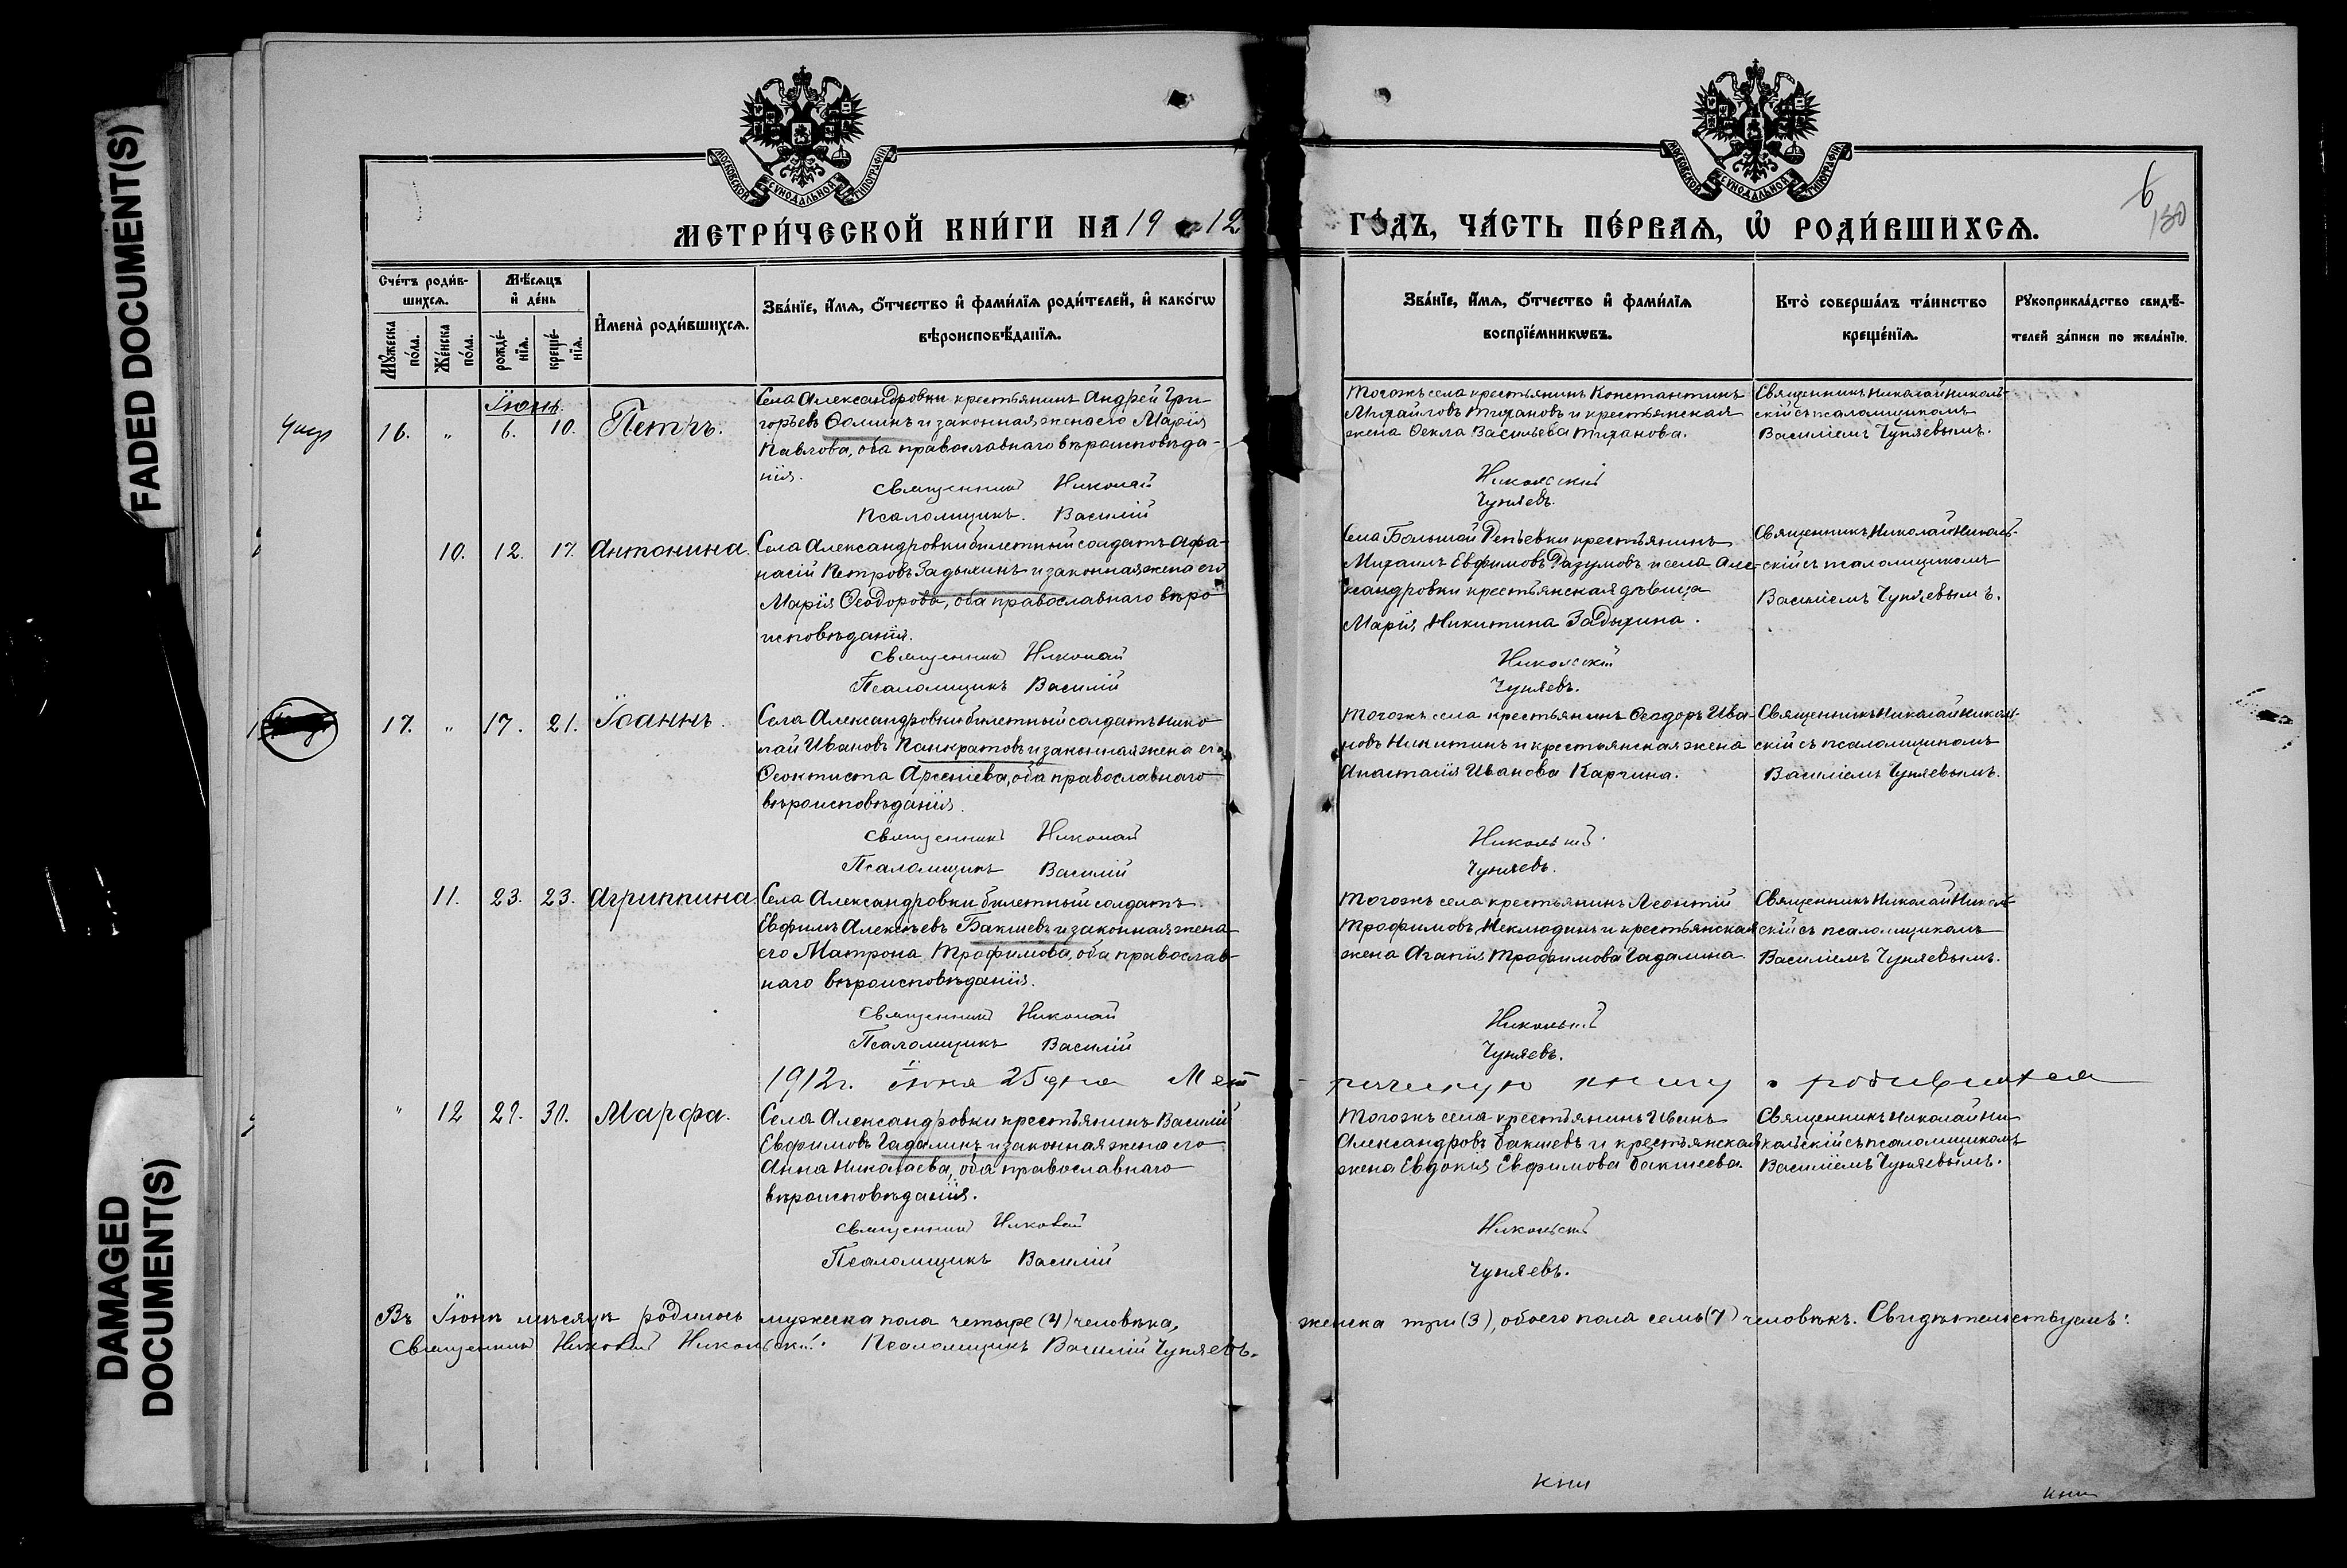 FADED DOCUMENT(S)
DAMAGED
DOCUMENT(S)
МОСКОВСКОЙ СѴНОДАЛЬНОЙ ТИПОГРАФІИ
МОСКОВСКОЙ СѴНОДАЛЬНОЙ ТИПОГРАФІИ
6
130
МЕТРИ́ЧЕСКОЙ КНИ́ГИ НА 1912 ГО́ДЪ, ЧА́СТЬ ПЕ́РВАѦ, Ѡ҆ РОДИ́ВШИХСѦ.
Сче́тъ роди́в-
шихсѧ.
Мꙋ́жеска по́ла.
Же́нска по́ла.
Мѣ́сѧцъ
и҆ де́нь
рожде́-нїѧ.
креще́-нїѧ.
И҆мена̀ роди́вшихсѧ.
Зва́нїе, и҆́мѧ, ѻ҆́тчество и҆ фами́лїѧ роди́телей, и҆ како́гѡ
вѣроисповѣ́данїѧ.
Зва́нїе, и҆́мѧ, ѻ҆́тчество и҆ фами́лїѧ
воспрїе́мникѡвъ.
Кто̀ соверша́лъ та́инство
креще́нїѧ.
Рꙋкоприкла́дство свидѣ́-
телей за́писи по жела́нїю.
Іюнь.
16. „ 6. 10. Петръ.
Села Александровки крестьянинъ Андрей Гри-
горьевъ Ѳоминъ и законная жена его Марія
Павлова, оба православнаго вѣроисповѣда-
нія.
Священникъ Николай
Псаломщикъ. Василій
Тогожъ села крестьянинъ Константинъ
Михайловъ Тихановъ и крестьянская
жена Ѳекла Васильева Тиханова.
Никольскій
Чуняевъ.
Священникъ Николай Николь-
скій съ псаломщикомъ
Василіемъ Чуняевымъ.
10. 12. 17. Антонина.
Села Александровки билетный солдатъ Афа-
насій Петровъ Задыхинъ и законная жена его
Марія Ѳеодорова, оба православнаго вѣро
исповѣданія.
Священникъ Николай
Псаломщикъ Василій
Села Большой Репьевки крестьянинъ
Михаилъ Евфимовъ Разумовъ и села Але-
ксандровки крестьянская дѣвица
Марія Никитина Задыхина.
Никольскій
Чуняевъ.
Священникъ Николай Николь-
скій съ псаломщикомъ
Василіемъ Чуняевымъ.
17. „ 17. 21. Іоаннъ.
Села Александровки билетный солдатъ Нико
лай Ивановъ Панкратовъ и законная жена его
Ѳеоктиста Арсеніева, оба православнаго
вѣроисповѣданія.
Священникъ Николай
Псаломщикъ Василій
Тогожъ села крестьянинъ Ѳеодоръ Ива-
новъ Никитинъ и крестьянская жена
Анастасія Иванова Карпина.
Никольскій.
Чуняевъ.
Священникъ Николай Николь-
скій съ псаломщикомъ
Василіемъ Чуняевымъ.
11. 23. 23. Агриппина.
Села Александровки билетный солдатъ
Евфимъ Алексѣевъ Бакшеевъ и законная жена
его Матрона Трофимова, оба православ-
наго вѣроисповѣданія.
Священникъ Николай
Псаломщикъ Василій
Тогожъ села крестьянинъ Леонтій
Трофимовъ Неклюдинъ и крестьянская
жена Агапія Трофимова Гадалина.
Никольскій
Чуняевъ.
Священникъ Николай Николь-
скій съ псаломщикомъ
Василіемъ Чуняевымъ.
1912 г. Іюня 25 дня Мет-рическую книгу о родившихся
„ 12 29. 30. Марфа.
Села Александровки крестьянинъ Василій
Евфимовъ Гадалинъ и законная жена его
Анна Николаева, оба православнаго
вѣроисповѣданія.
Священникъ Николай
Псаломщикъ Василій
Тогожъ села крестьянинъ Иванъ
Александровъ Бакшеевъ и крестьянская
жена Евдокія Евфимова Бакшеева.
Никольскій
Чуняевъ.
Священникъ Николай Ни-
кольскій съ псаломщикомъ
Василіемъ Чуняевымъ.
Въ Іюнѣ мѣсяцѣ родилось мужеска пола четыре (4) человѣка, женска три (3), обоего пола семь (7) человѣкъ. Свидѣтельствуемъ:
Священникъ Николай Никольскій. Псаломщикъ Василій Чуняевъ.